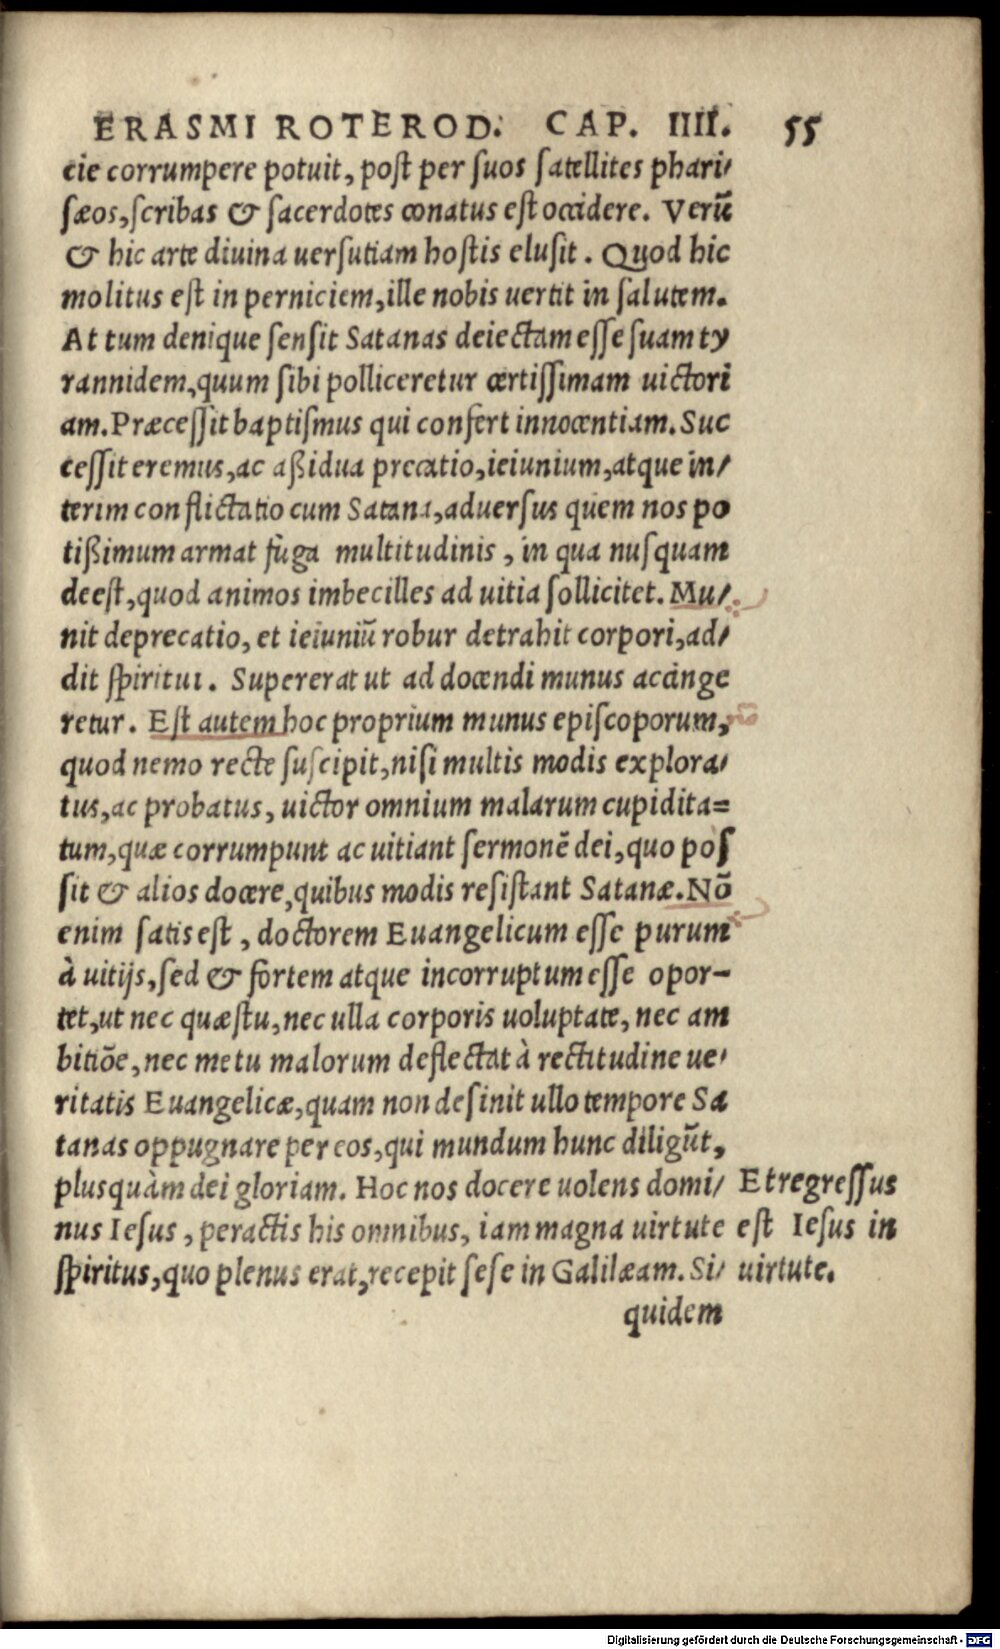 ERASMI ROTEROD. CAP. IIII. 55
cie corrumpere potuit, post per suos satellites phari/
sæos, scribas & sacerdotes conatus est occidere. Verũ
& hic arte diuina uersutiam hostis elusit. Quod hic
molitus est in perniciem, ille nobis uertit in salutem.
At tum denique sensit Satanas deiectam esse suam ty
rannidem, quum sibi polliceretur certissimam uictori
am. Præcessit baptismus qui confert innocentiam. Suc
cessit eremus, ac aßidua precatio, ieiunium, atque in/
terim conflictatio cum Satana, aduersus quem nos po
tißimum armat fuga multitudinis, in qua nusquam
deest, quod animos imbecilles ad uitia sollicitet. Mu/
nit deprecatio, et ieiuniũ robur detrahit corpori, ad/
dit spiritui. Supererat ut ad docendi munus accinge
retur. Est autem hoc proprium munus episcoporum,
quod nemo recte suscipit, nisi multis modis explora/
tus, ac probatus, uictor omnium malarum cupidita=
tum, quæ corrumpunt ac uitiant sermonẽ dei, quo pos
sit & alios docere, quibus modis resistant Satanæ. Nõ
enim satis est, doctorem Euangelicum esse purum
à uitijs, sed & fortem atque incorruptum esse opor-
tet, ut nec quæstu, nec ulla corporis uoluptate, nec am
bitiõe, nec metu malorum deflectat à rectitudine ue/
ritatis Euangelicæ, quam non desinit ullo tempore Sa
tanas oppugnare per eos, qui mundum hunc diligũt,
plusquàm dei gloriam. Hoc nos docere uolens domi/
nus Iesus, peractis his omnibus, iam magna uirtute
spiritus, quo plenus erat, recepit sese in Galilæam. Si/
quidem
Et regressus
est Iesus in
uirtute.
Digitalisierung gefördert durch die Deutsche Forschungsgemeinschaft - DFG